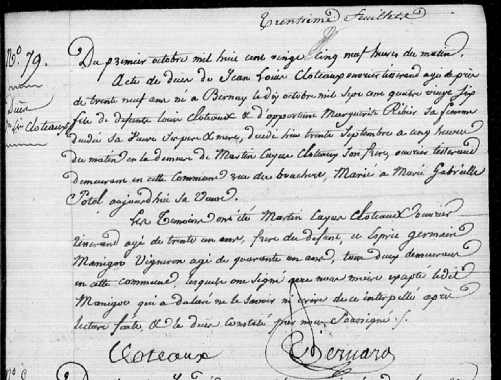 Trentième feuillet
No. 79.
Du premier octobre mil huit cent vingt cinq neuf heures du matin.
Acte de décès de Jean Louis Cloteaux ouvrier tisserand agé de près
de trente neuf ans né à Bernay le dix octobre mil sept cent quatre vingt six
fils de defunte Louis Cloteaux & d'apportune Marguerite Ribis sa femme
décédé hier trente Septembre a cinq heures
du matin en la demeure de Martin Cloteaux son frère, ouvrier tisserand
demeurant en cette Commune rue des Marié a Marie Gabrielle
Potel aujourdhui sa Veuve.
Les Temoins ont été Martin Cloteaux ouvrier
tisserand agé de trente un ans, frère du defunt, et Esprit germain
Manigot Vigneron agé de quarante un ans, tous deux demeurans
en cette commune, lesquels ont signé avec nous maire excepté ledit
Manigot qui a déclaré ne le savoir ni écrire de ce interpellé après
lecture faite, & le décès constaté par nous Soussigné.
Cloteaux Bernard